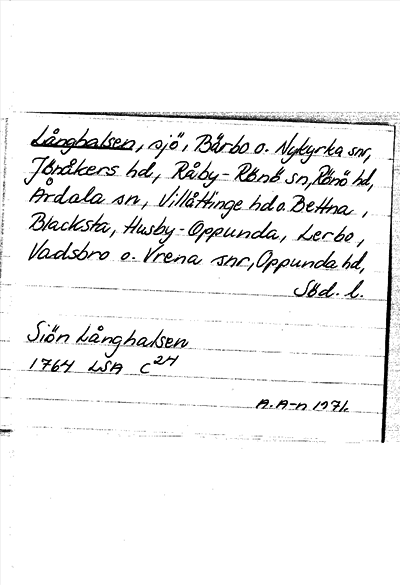 Långhalsen, sjö, Bärbo o. Nykyrka snr,
Jönåkers hd, Råby-Rönö sn, Rönö hd,
Årdala sn, Villåttinge hd o. Bettna,
Blacksta, Husby-Oppunda, Lerbo,
Vadsbro o. Vrena snr, Oppunda hd,
Söd. l.
Siön Långhalsen
1764 LSA C24
A. A-n 1971.